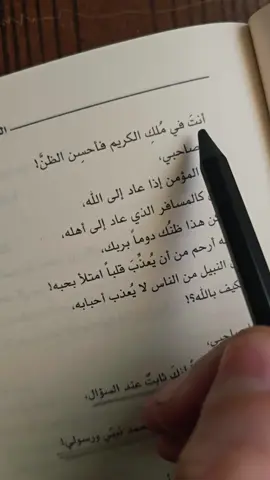 أنتَ في مُلكِ الكريم فأحسِن الظنَّ!
صاحبي،
المؤمن إذا عاد إلى الله،
كالمسافر الذي عاد إلى أهله،
هذا ظنُّك دوماً بربك،
أرحم من أن يُعذِّبَ قلباً امتلأ بحبه!
النبيل من الناس لا يُعذب أحبابه،
فكيف بالله؟!
ثابتٌ عند السؤال،
نبيّي ورسولي!